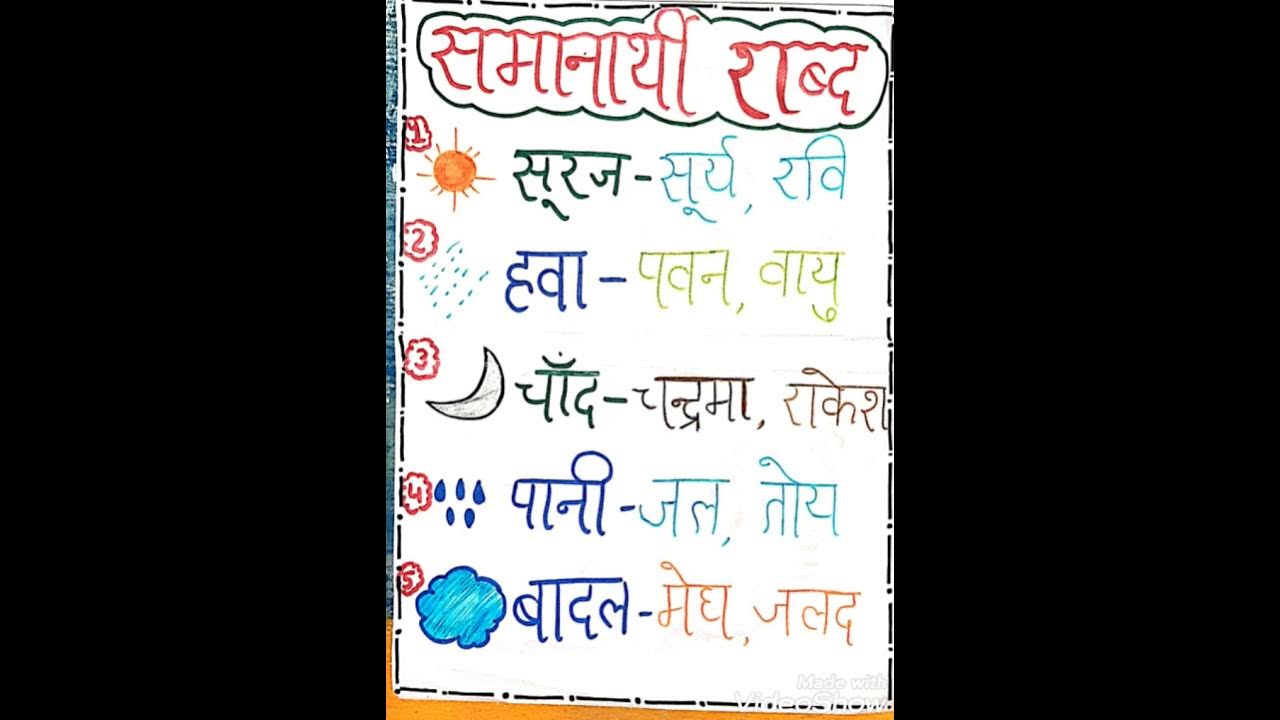 समानार्थी शब्द
1
सूरज - सूर्य, रवि
2
हवा - पवन, वायु
3
चाँद - चन्द्रमा, राकेश
4
पानी - जल, तोय
5
बादल - मेघ, जलद
Made with
VideoShow